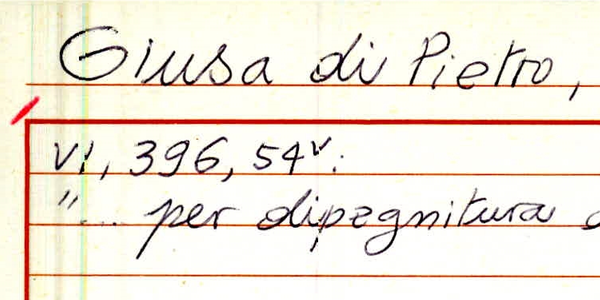 Giusa di Pietro,
VI, 396, 54v:
"... per dipegnitura